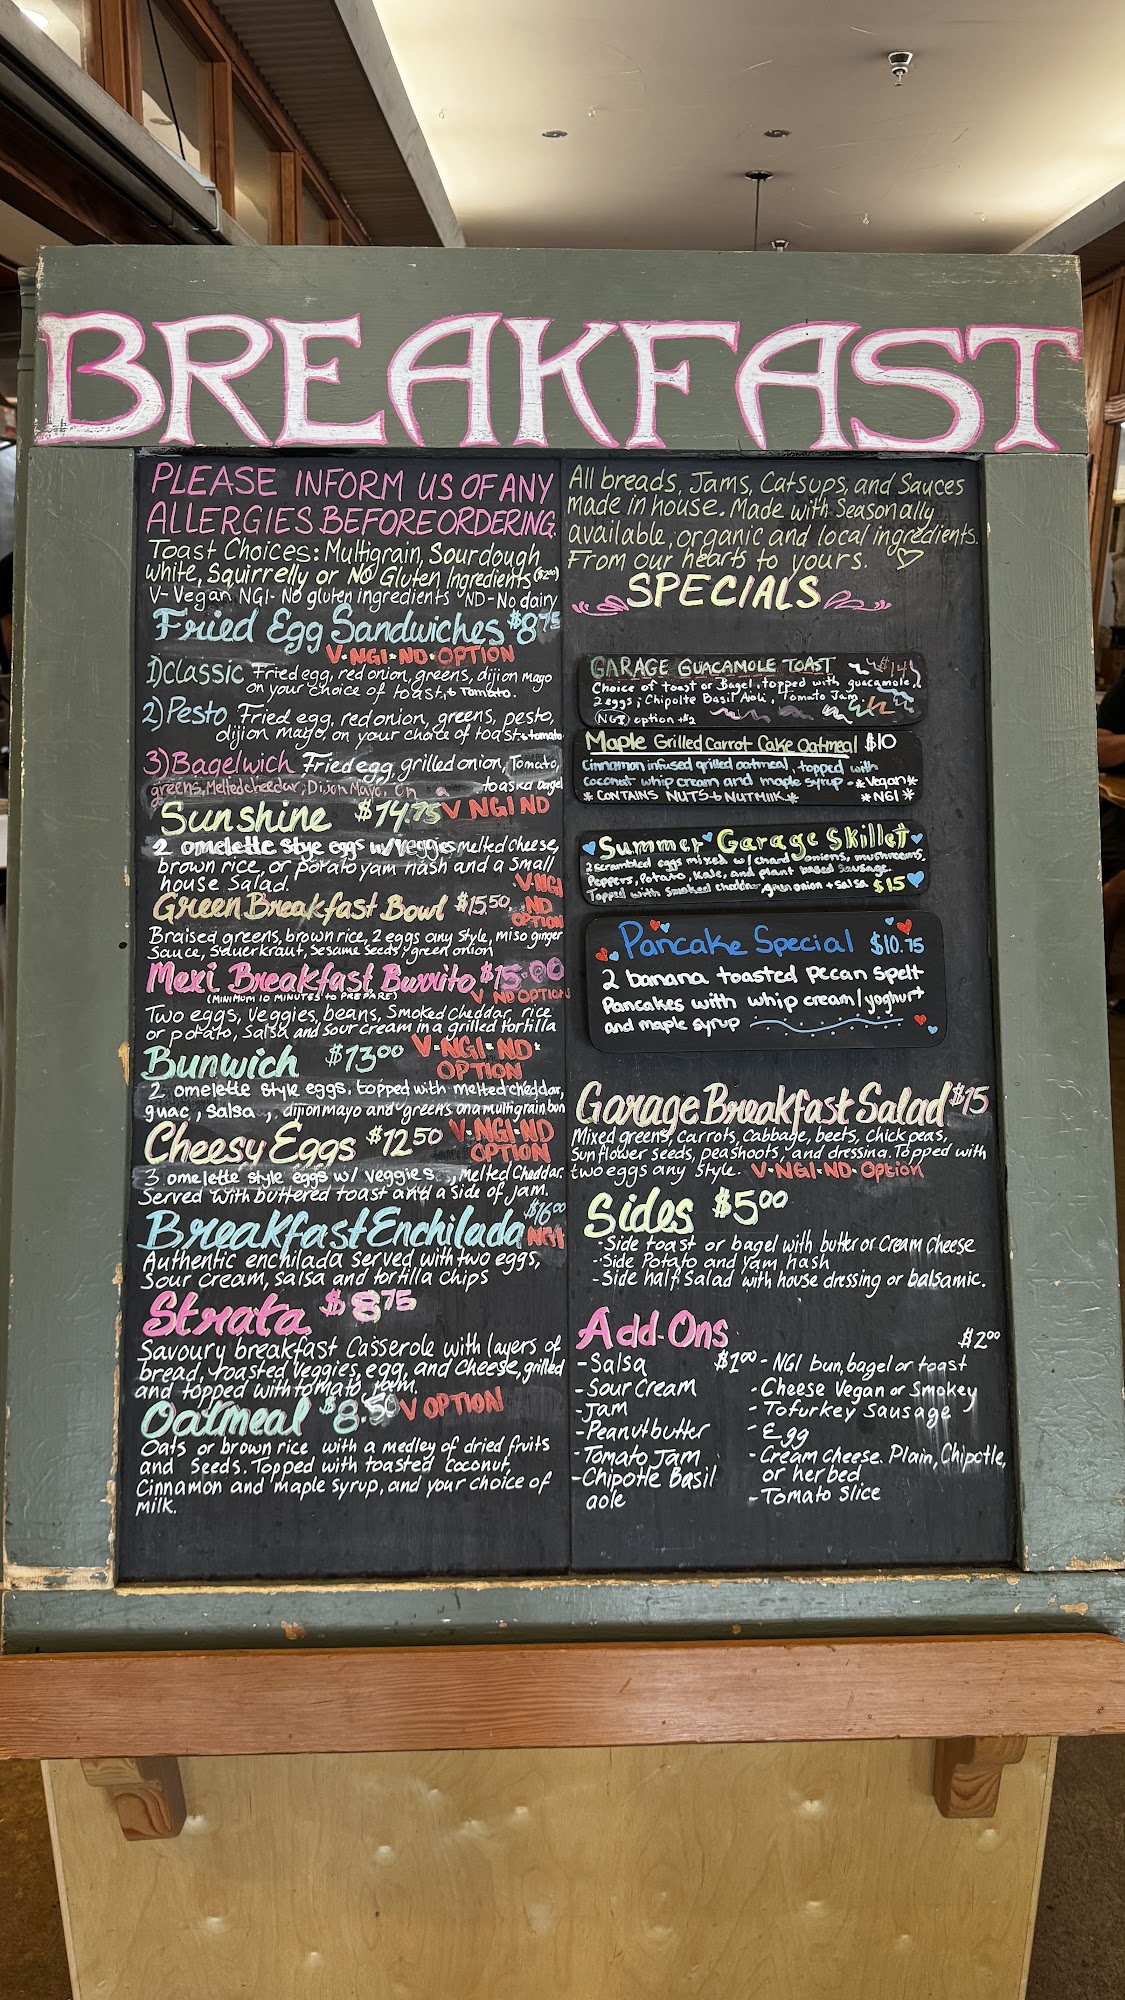 BREAKFAST
PLEASE INFORM US OF ANY
ALLERGIES BEFORE ORDERING.
Toast Choices: Multigrain, Sourdough
White, Squirrelly or NO Gluten Ingredients ($2.00)
V- Vegan NGI- No gluten ingredients ND- No dairy
Fried Egg Sandwiches $8.75
V•NGI•ND•OPTION
1) Classic Fried egg, red onion, greens, dijon mayo
on your choice of toast, + Tomato.
2) Pesto Fried egg, red onion, greens, pesto,
dijion mayo, on your choice of toast. + tomato
3) Bagelwich Fried egg, grilled onion, Tomato,
greens, Melted cheddar, Dijon Mayo, On a toaska bagel
Sunshine $14.75 V NGI ND
2 omelette stye eggs w/ veggies melted cheese,
brown rice, or potato yam hash and a small
house Salad.
Green Breakfast Bowl $15.50 V•NGI ND OPTION
Braised greens, brown rice, 2 eggs any style, miso ginger
Sauce, Sauerkraut, sesame seeds, green onion
Mexi Breakfast Burrito $15.00
(MINIMUM 10 MINUTES to PREPARE) V ND OPTION
Two eggs, Veggies, beans, Smoked Cheddar, rice
or potato, Salsa and sour cream in a grilled tortilla
Bunwich $13.00 V•NGI•ND•
OPTION
2 omelette style eggs, topped with melted cheddar,
guac, salsa, dijion mayo and greens on a multigrain bun
Cheesy Eggs $12.50 V•NGI•ND
OPTION
3 omelette style eggs w/ veggies, Melted Cheddar.
Served with buttered toast and a side of jam.
Breakfast Enchilada $16.00 NGI
Authentic enchilada served with two eggs,
sour cream, salsa and tortilla chips
Strata $8.75
Savoury breakfast Casserole with layers of
bread, roasted veggies, egg, and cheese, grilled
and topped with tomato jam.
Oatmeal $8.50 V OPTION
Oats or brown rice with a medley of dried fruits
and seeds. Topped with toasted coconut,
Cinnamon and maple syrup, and your choice of
milk.
All breads, Jams, Catsups, and Sauces
made in house. Made with Seasonally
available, organic and local ingredients.
From our hearts to yours. ♡
SPECIALS
GARAGE GUACAMOLE TOAST $14
Choice of toast or Bagel, topped with guacamole,
2 eggs, Chipolte Basil Aioli, Tomato Jam
(NGI) option +$2
Maple Grilled Carrot Cake Oatmeal $10
Cinnamon infused grilled oatmeal, topped with
coconut whip cream and maple syrup *Vegan*
* CONTAINS NUTS & NUTMILK * *NGI*
Summer Garage Skillet
2 scrambled eggs mixed w/ chard, onions, mushrooms,
Peppers, Potato, Kale, and plant based Sausage.
Topped with smoked cheddar, green onion + salsa $15
Pancake Special $10.75
2 banana toasted pecan spelt
Pancakes with whip cream/yoghurt
and maple syrup
Garage Breakfast Salad $15
Mixed greens, carrots, cabbage, beets, chick peas,
Sunflower seeds, peashoots, and dressing. Topped with
two eggs any style. V•NGI•ND•Option
Sides $5.00
- Side toast or bagel with butter or cream cheese
- Side Potato and Yam hash
- Side half Salad with house dressing or balsamic.
Add-Ons
- Salsa $1.00
- Sour Cream
- Jam
- Peanut butter
- Tomato Jam
- Chipotle Basil
aole
$2.00
- NGI bun, bagel or toast
- Cheese Vegan or Smokey
- Tofurkey Sausage
- Egg
- Cream cheese. Plain, Chipotle,
or herbed
- Tomato Slice